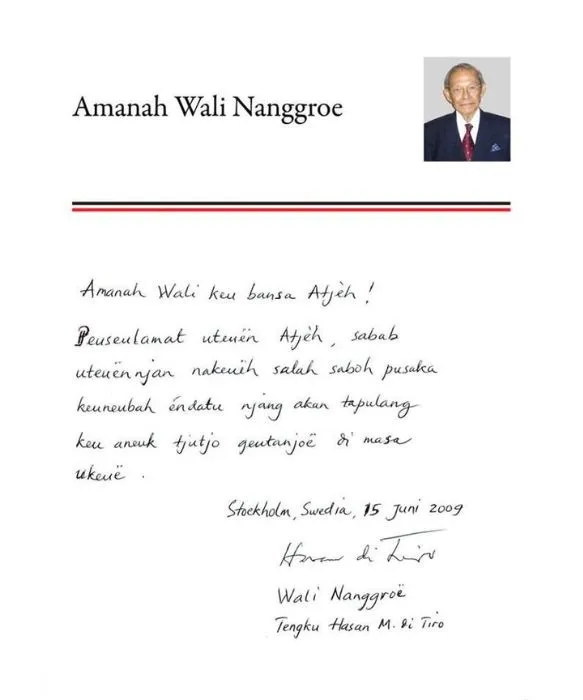 Amanah Wali Nanggroe
Amanah Wali keu bansa Atjèh !
Peuseulamat uteuën Atjèh, sabab
uteuën njan nakeuih salah saboh pusaka
keuneubah éndatu njang akan tapulang
keu aneuk tjutjo geutanjoë di masa
ukeuë .
Stockholm, Swedia, 15 Juni 2009
Hasan di Tiro
Wali Nanggroë
Tengku Hasan M. di Tiro